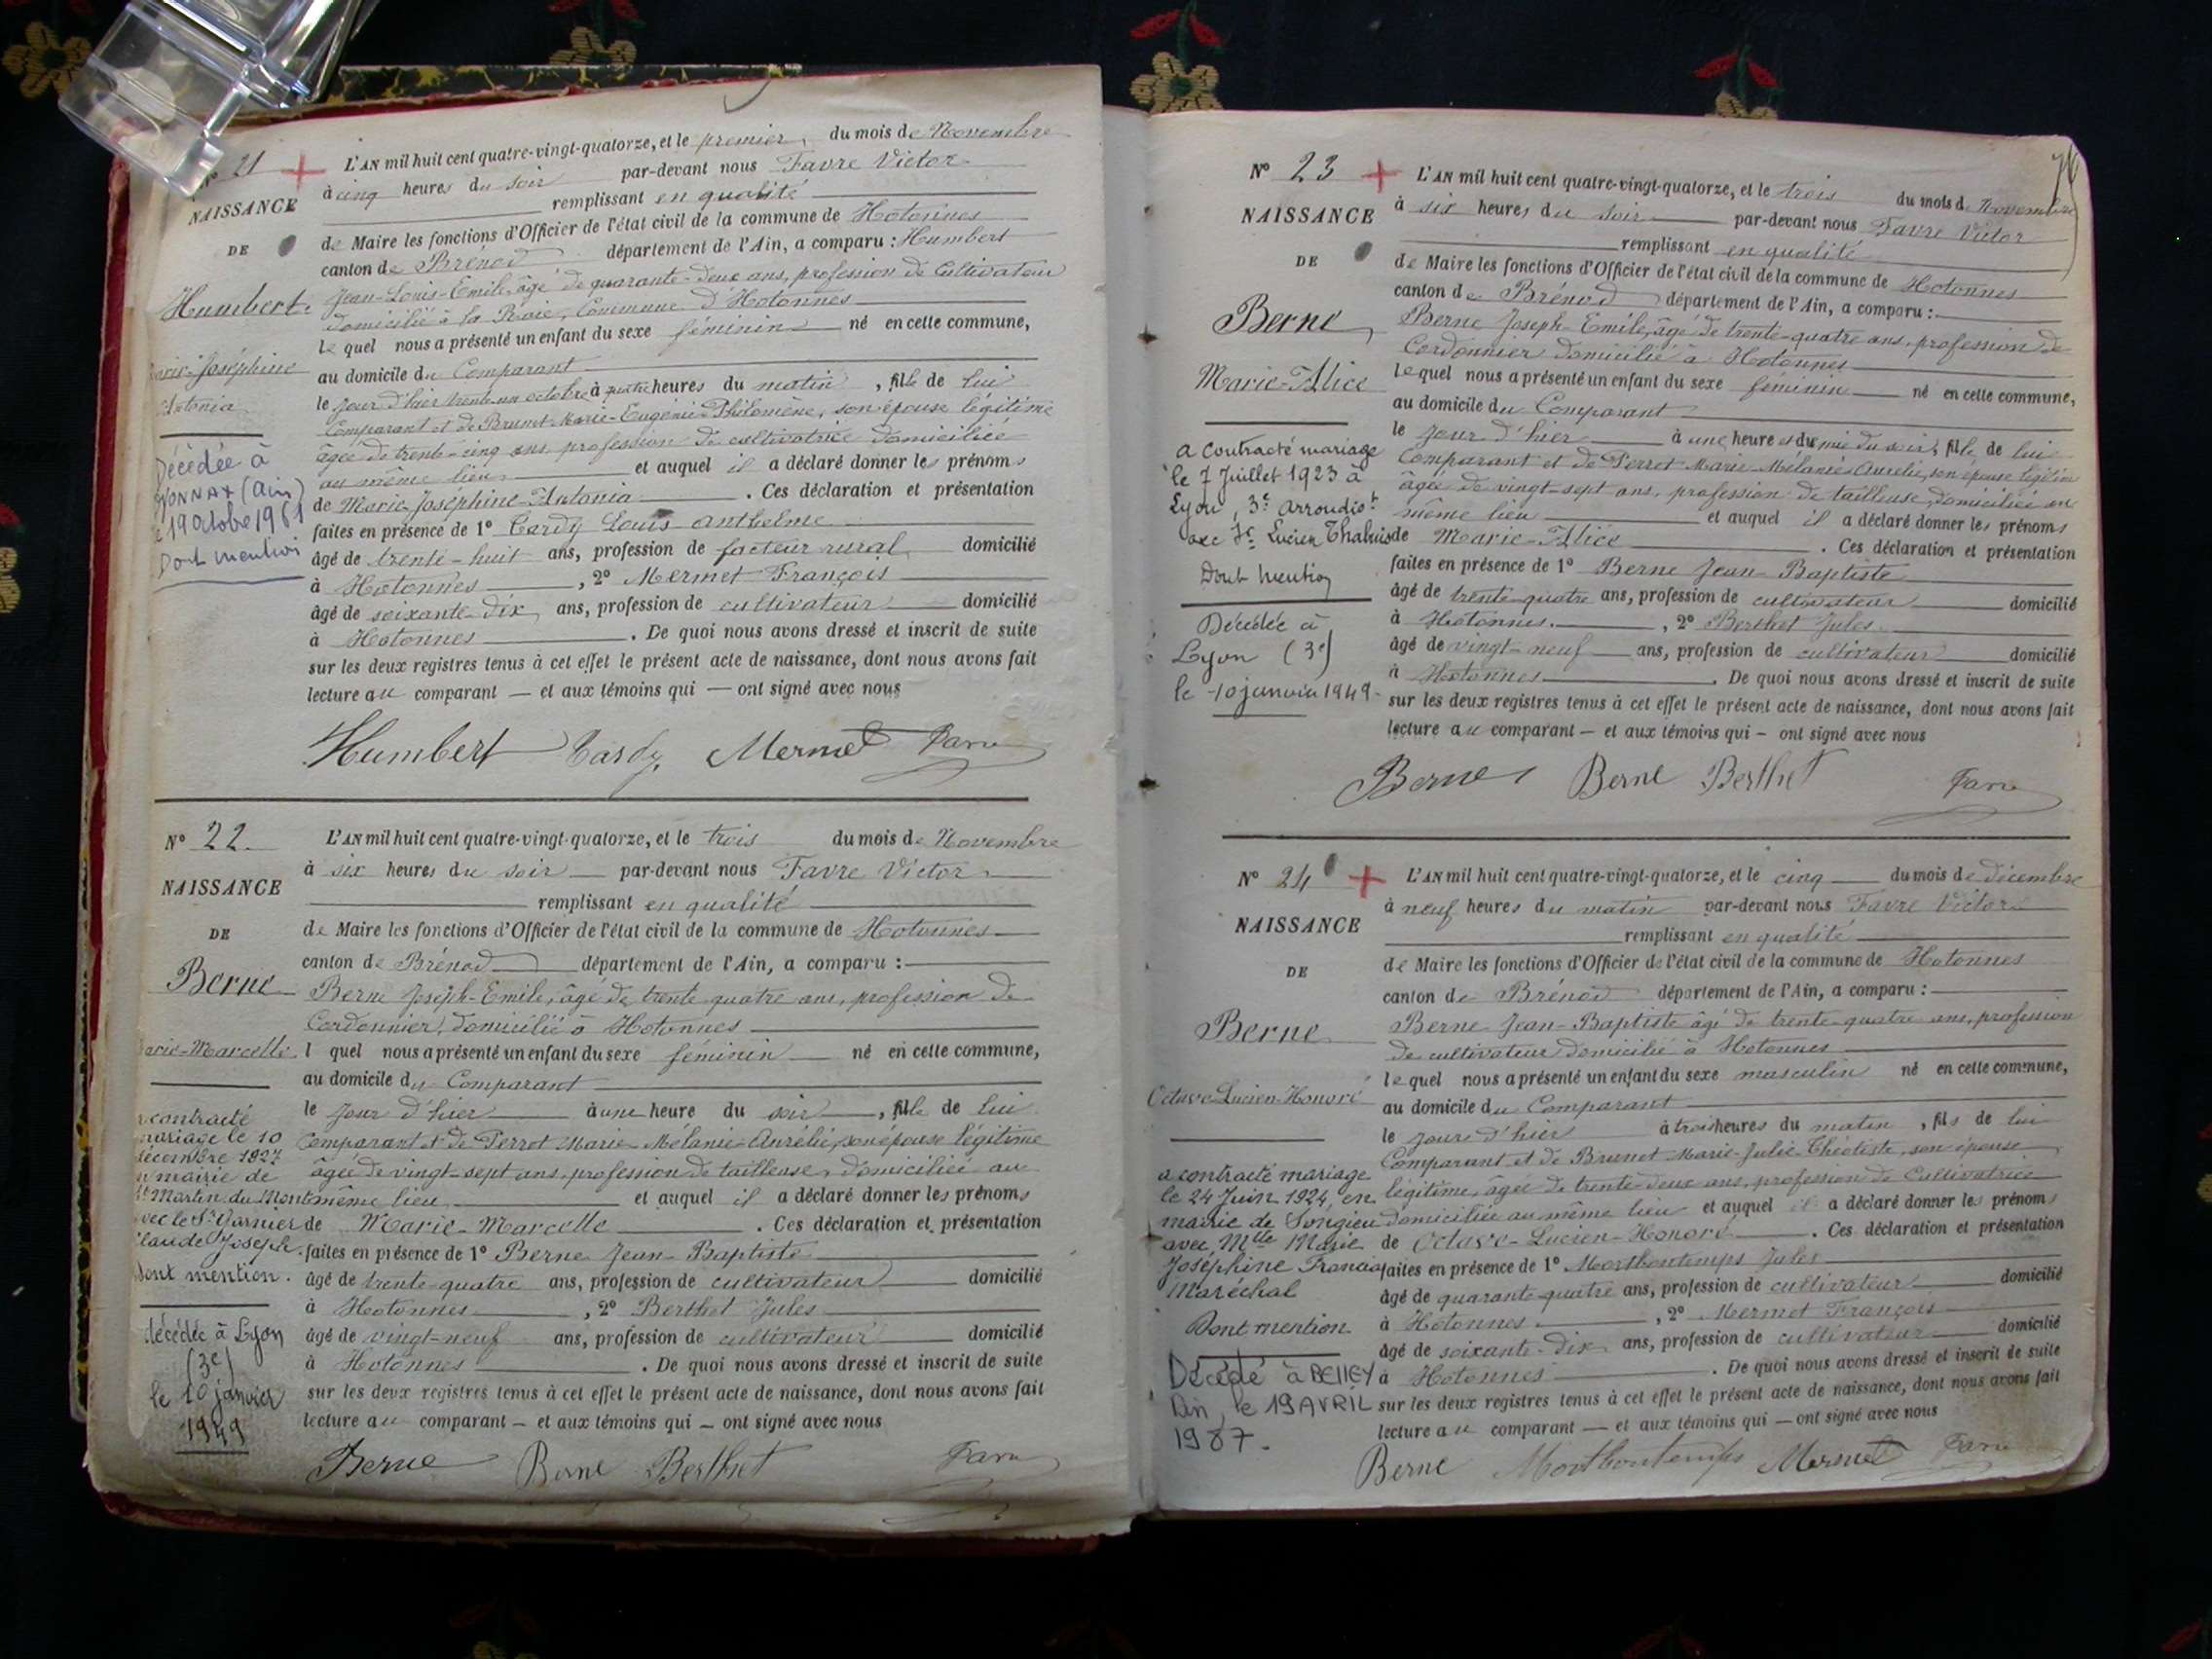 N° 21
NAISSANCE
DE
Humbert
Marie-Joséphine
Antonia
Décédée à
OYONNAX (Ain)
le 19 octobre 1961
Dont mention
L'AN mil huit cent quatre-vingt-quatorze, et le premier du mois de Novembre
à cinq heures du soir par-devant nous Favre Victor
remplissant en qualité
de Maire les fonctions d'Officier de l'état civil de la commune de Hotonnes
canton de Brénod département de l'Ain, a comparu : Humbert
Jean-Louis-Emile, âgé de quarante-deux ans, profession de Cultivateur
domicilié à la Commune d'Hotonnes
le quel nous a présenté un enfant du sexe féminin né en cette commune,
au domicile du Comparant
le jour d'hier trente-un octobre à quatre heures du matin, fille de lui
Comparant et de Brunet Marie-Eugénie-Philomène, son épouse légitime
âgée de trente-cinq ans, profession de cultivatrice domiciliée
au même lieu et auquel il a déclaré donner les prénoms
de Marie-Joséphine-Antonia. Ces déclaration et présentation
faites en présence de 1° Tardy Louis Anthelme
âgé de trente-huit ans, profession de facteur rural domicilié
à Hotonnes, 2° Mermet François
âgé de soixante-dix ans, profession de cultivateur domicilié
à Hotonnes. De quoi nous avons dressé et inscrit de suite
sur les deux registres tenus à cet effet le présent acte de naissance, dont nous avons fait
lecture au comparant — et aux témoins qui — ont signé avec nous
Humbert Tardy Mermet Favre
N° 22
NAISSANCE
DE
Berne
Marie-Marcelle
a contracté
mariage le 10
décembre 1927
en mairie de
St Martin du Mont
avec le Sr Garnier
Claude Joseph.
Dont mention.
décédée à Lyon
(3e)
le 10 janvier
1949
L'AN mil huit cent quatre-vingt-quatorze, et le trois du mois de Novembre
à six heures du soir par-devant nous Favre Victor
remplissant en qualité
de Maire les fonctions d'Officier de l'état civil de la commune de Hotonnes
canton de Brénod département de l'Ain, a comparu :
Berne Joseph-Emile, âgé de trente-quatre ans, profession de
Cordonnier, domicilié à Hotonnes
l quel nous a présenté un enfant du sexe féminin né en cette commune,
au domicile du Comparant
le jour d'hier à une heure du soir, fille de lui
Comparant et de Perret Marie-Mélanie-Aurélie, son épouse légitime
âgée de vingt-sept ans, profession de tailleuse, domiciliée au
même lieu et auquel il a déclaré donner les prénoms
de Marie-Marcelle. Ces déclaration et présentation
faites en présence de 1° Berne Jean-Baptiste
âgé de trente-quatre ans, profession de cultivateur domicilié
à Hotonnes, 2° Berthet Jules
âgé de vingt-neuf ans, profession de cultivateur domicilié
à Hotonnes. De quoi nous avons dressé et inscrit de suite
sur les deux registres tenus à cet effet le présent acte de naissance, dont nous avons fait
lecture au comparant — et aux témoins qui — ont signé avec nous
Berne Berne Berthet Favre
N° 23
NAISSANCE
DE
Berne
Marie-Alice
a contracté mariage
le 7 Juillet 1923 à
Lyon, 3e Arrondist
avec Lucien
Dont mention
Décédée à
Lyon (3e)
le 10 janvier 1949
L'AN mil huit cent quatre-vingt-quatorze, et le trois du mois de Novembre
à six heures du soir par-devant nous Favre Victor
remplissant en qualité
de Maire les fonctions d'Officier de l'état civil de la commune de Hotonnes
canton de Brénod département de l'Ain, a comparu :
Berne Joseph-Emile, âgé de trente-quatre ans, profession de
Cordonnier domicilié à Hotonnes
le quel nous a présenté un enfant du sexe féminin né en cette commune,
au domicile du Comparant
le jour d'hier à une heure et demie du soir, fille de lui
Comparant et de Perret Marie-Mélanie-Aurélie, son épouse légitime
âgée de vingt-sept ans, profession de tailleuse, domiciliée au
même lieu et auquel il a déclaré donner les prénoms
de Marie-Alice. Ces déclaration et présentation
faites en présence de 1° Berne Jean-Baptiste
âgé de trente-quatre ans, profession de cultivateur domicilié
à Hotonnes, 2° Berthet Jules
âgé de vingt-neuf ans, profession de cultivateur domicilié
à Hotonnes. De quoi nous avons dressé et inscrit de suite
sur les deux registres tenus à cet effet le présent acte de naissance, dont nous avons fait
lecture au comparant — et aux témoins qui — ont signé avec nous
Berne Berne Berthet Favre
N° 24
NAISSANCE
DE
Berne
Octave-Lucien-Honoré
a contracté mariage
le 24 Juin 1924, en
mairie de Songieu
avec Mlle Marie
Joséphine Francia
Maréchal
Dont mention
Décédé à BELLEY
Ain, le 19 AVRIL
1987.
L'AN mil huit cent quatre-vingt-quatorze, et le cinq du mois de décembre
à neuf heures du matin par-devant nous Favre Victor
remplissant en qualité
de Maire les fonctions d'Officier de l'état civil de la commune de Hotonnes
canton de Brénod département de l'Ain, a comparu :
Berne Jean-Baptiste âgé de trente-quatre ans, profession
de cultivateur domicilié à Hotonnes
le quel nous a présenté un enfant du sexe masculin né en cette commune,
au domicile du Comparant
le jour d'hier à trois heures du matin, fils de lui
Comparant et de Brunet Marie-Julie-Théotiste, son épouse
légitime, âgée de trente-deux ans, profession de Cultivatrice
domiciliée au même lieu et auquel il a déclaré donner les prénoms
de Octave-Lucien-Honoré. Ces déclaration et présentation
faites en présence de 1° Jules
âgé de quarante-quatre ans, profession de cultivateur domicilié
à Hotonnes, 2° Mermet François
âgé de soixante-dix ans, profession de cultivateur domicilié
à Hotonnes. De quoi nous avons dressé et inscrit de suite
sur les deux registres tenus à cet effet le présent acte de naissance, dont nous avons fait
lecture au comparant — et aux témoins qui — ont signé avec nous
Berne Mermet Favre